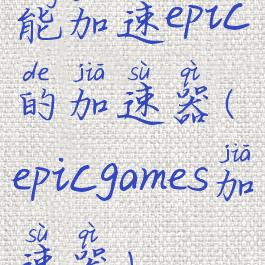 能加速epic
de jiā sù qì
的加速器(
jiā
epicgames加
sù qì
速器)